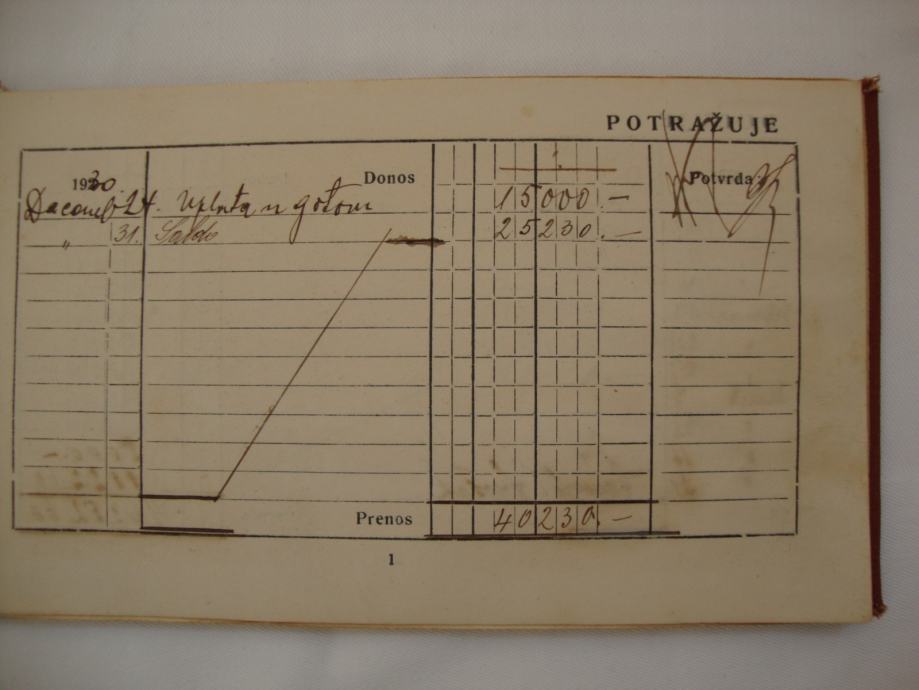 POTRAŽUJE
1930. Donos Potvrda
Decemb 24. Uplata u gotom 15000.—
„ 31. Saldo 25230.—
Prenos 40230.—
1